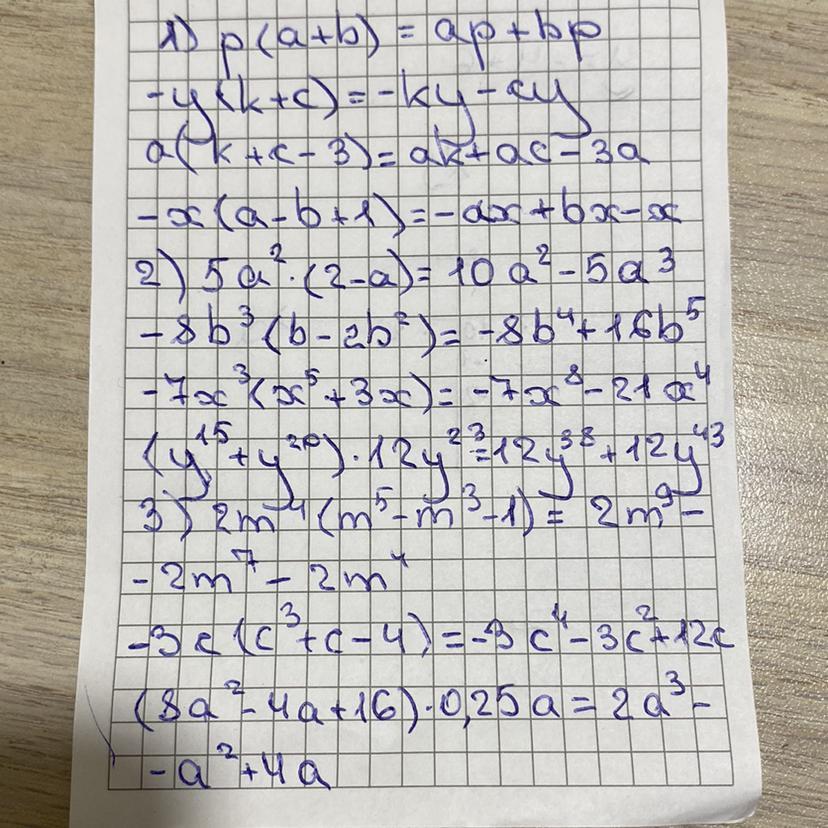 1) p(a+b) = ap+bp
-y(k+c)=-ky-cy
a(k+c-3)=ak+ac-3a
-x(a-b+1)=-ax+bx-x
2) 5a²·(2-a)=10a²-5a³
-8b³(b-2b²)=-8b⁴+16b⁵
-7x³(x⁵+3x)=-7x⁸-21x⁴
(y¹⁵+y²⁰)·12y²³=12y³⁸+12y⁴³
3) 2m⁴(m⁵-m³-1)=2m⁹-
-2m⁷-2m⁴
-3c(c³+c-4)=-3c⁴-3c²+12c
(8a²-4a+16)·0,25a=2a³-
-a²+4a